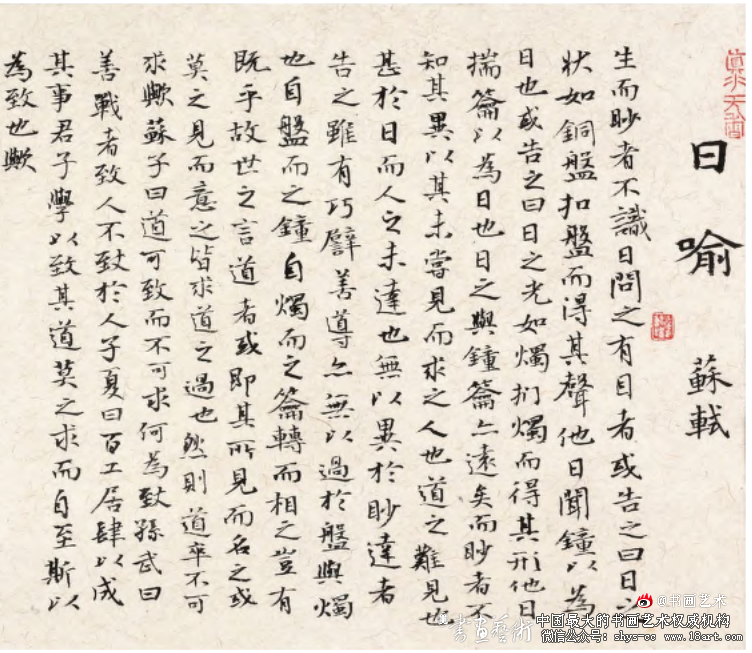 日喻
蘇軾
生而眇者不識日問之有目者或告之曰日之
狀如銅盤扣盤而得其聲他日聞鐘以為
日也或告之曰日之光如燭捫燭而得其形他日
揣籥以為日也日之與鐘籥亦遠矣而眇者不
知其異以其未嘗見而求之人也道之難見也
甚於日而人之未達也無以異於眇達者
告之雖有巧譬善導亦無以過於盤與燭
也自盤而之鐘自燭而之籥轉而相之豈有
既乎故世之言道者或即其所見而名之或
莫之見而意之皆求道之過也然則道卒不可
求歟蘇子曰道可致而不可求何為致孫武曰
善戰者致人不致於人子夏曰百工居肆以成
其事君子學以致其道莫之求而自至斯以
為致也歟
@书画艺术
書畫藝術
中国最大的书画艺术权威机构
微信公众号：shys-cc www.18art.com